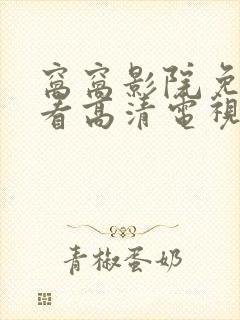 窝窝影院免
看高清电视
青椒蛋奶